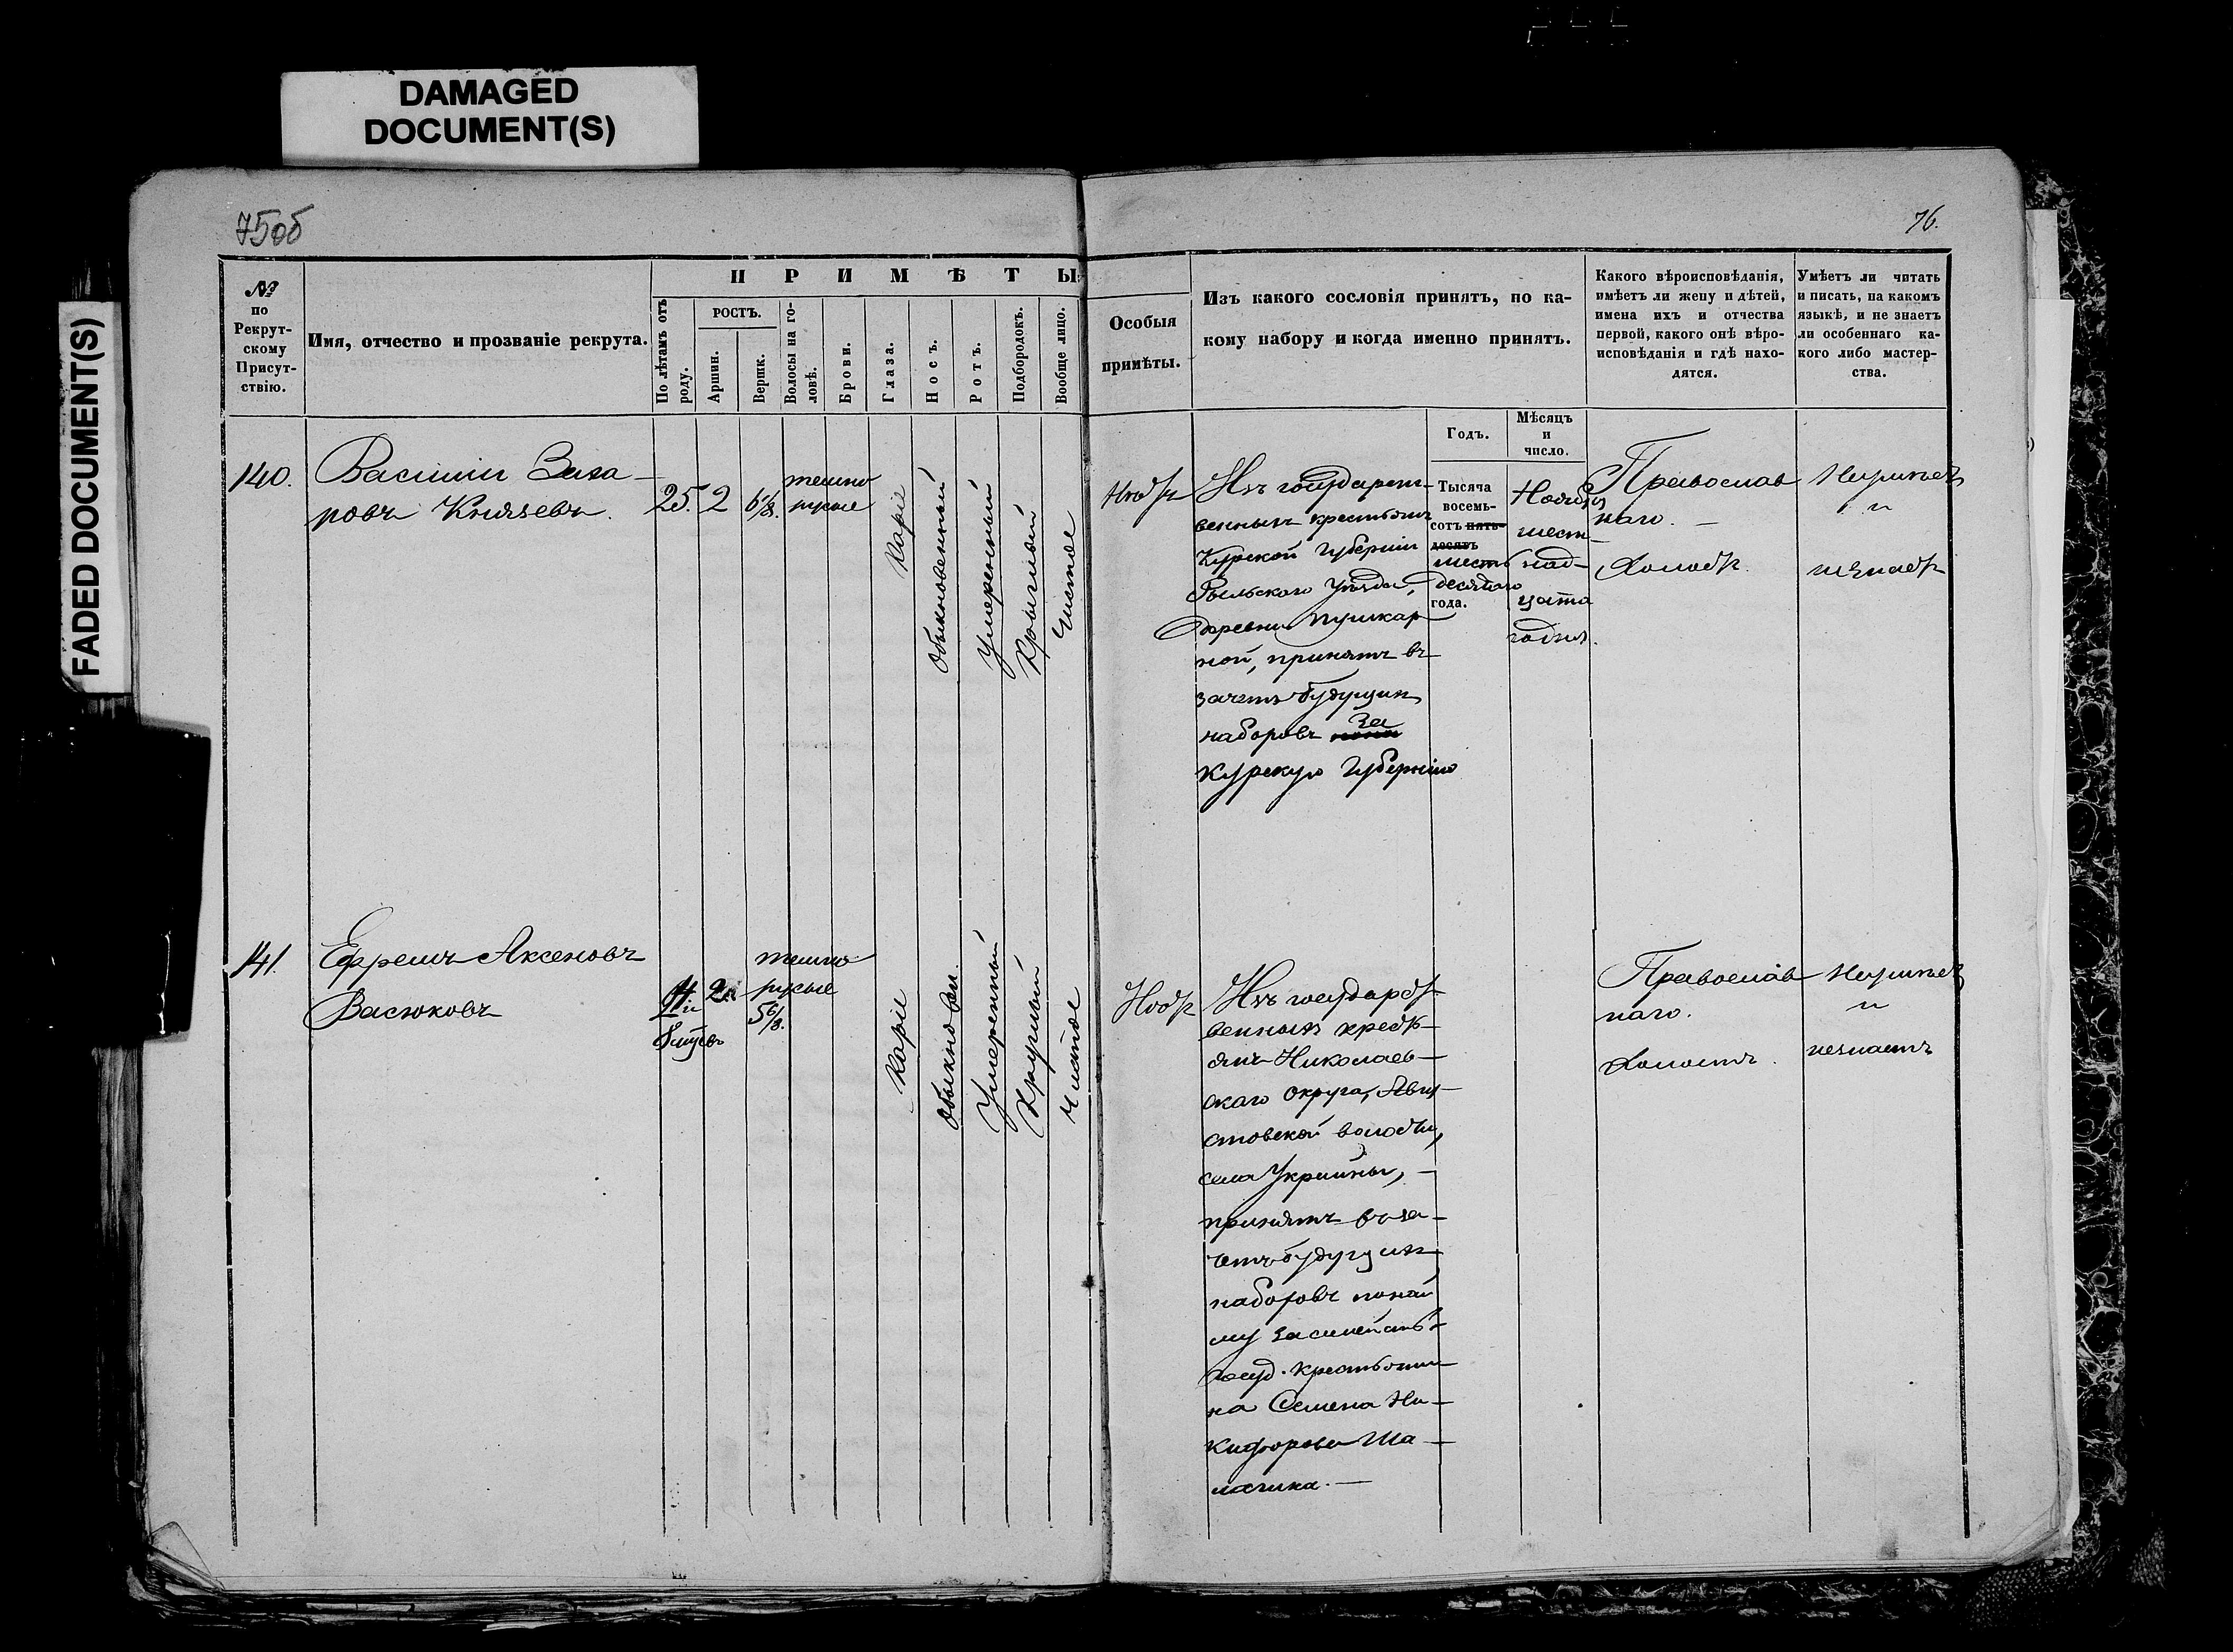 DAMAGED
DOCUMENT(S)
FADED DOCUMENT(S)
75об
76.
№
по
Рекрут-
скому
Присут-
ствію.
Имя, отчество и прозваніе рекрута.
П Р И М Ѣ Т Ы
По лѣтамъ отъ
роду.
РОСТЪ.
Аршин.
Вершк.
Волосы на го-
ловѣ.
Брови.
Глаза.
Носъ.
Ротъ.
Подбородокъ.
Вообще лицо.
Особыя
примѣты.
Изъ какого сословія принятъ, по ка-
кому набору и когда именно принятъ.
Какого вѣроисповѣданія,
имѣетъ ли жену и дѣтей,
имена ихъ и отчества
первой, какого онѣ вѣро-
исповѣданія и гдѣ нахо-
дятся.
Умѣетъ ли читать
и писать, на какомъ
языкѣ, и не знаетъ
ли особеннаго ка-
кого либо мастер-
ства.
Годъ.
Мѣсяцъ
и
число.
140.
Василий Заха-
ровъ Князевъ.
25.
2
6 6/8.
темно
русые
Каріе
Обыкновенный
Умеренный
Круглый
Чистое
Нѣтъ
Изъ государст-
венныхъ крестьянъ
Курской Губерніи
Рыльскаго Уѣзда,
деревни Пушкар
ной, принятъ въ
зачетъ будущихъ
наборовъ за
Курскую Губернію
Тысяча
восемь-
сотъ пять-
десятъ
шесть
десятаго
года.
Ноября
шест-
над-
цата
го дня.
Православ
наго. —
Холостъ.
Неумѣетъ
и
незнаетъ
141.
Ефремъ Аксеновъ
Васюковъ
2
5 6/8.
темно
русые
Каріе
Обыкновен.
Умеренный
Круглый
Чистое
Нѣтъ
Изъ государст-
венныхъ кресть-
янъ Николаев-
скаго округа, Авгу-
стовской волости,
села Украины, —
принятъ въ за-
четъ будущихъ
наборовъ по най
му за семейств
Госуд. крестьяни
на Семена Ни-
кифорова Ша-
Православ
наго.
Холостъ.
Неумѣетъ
и
незнаетъ